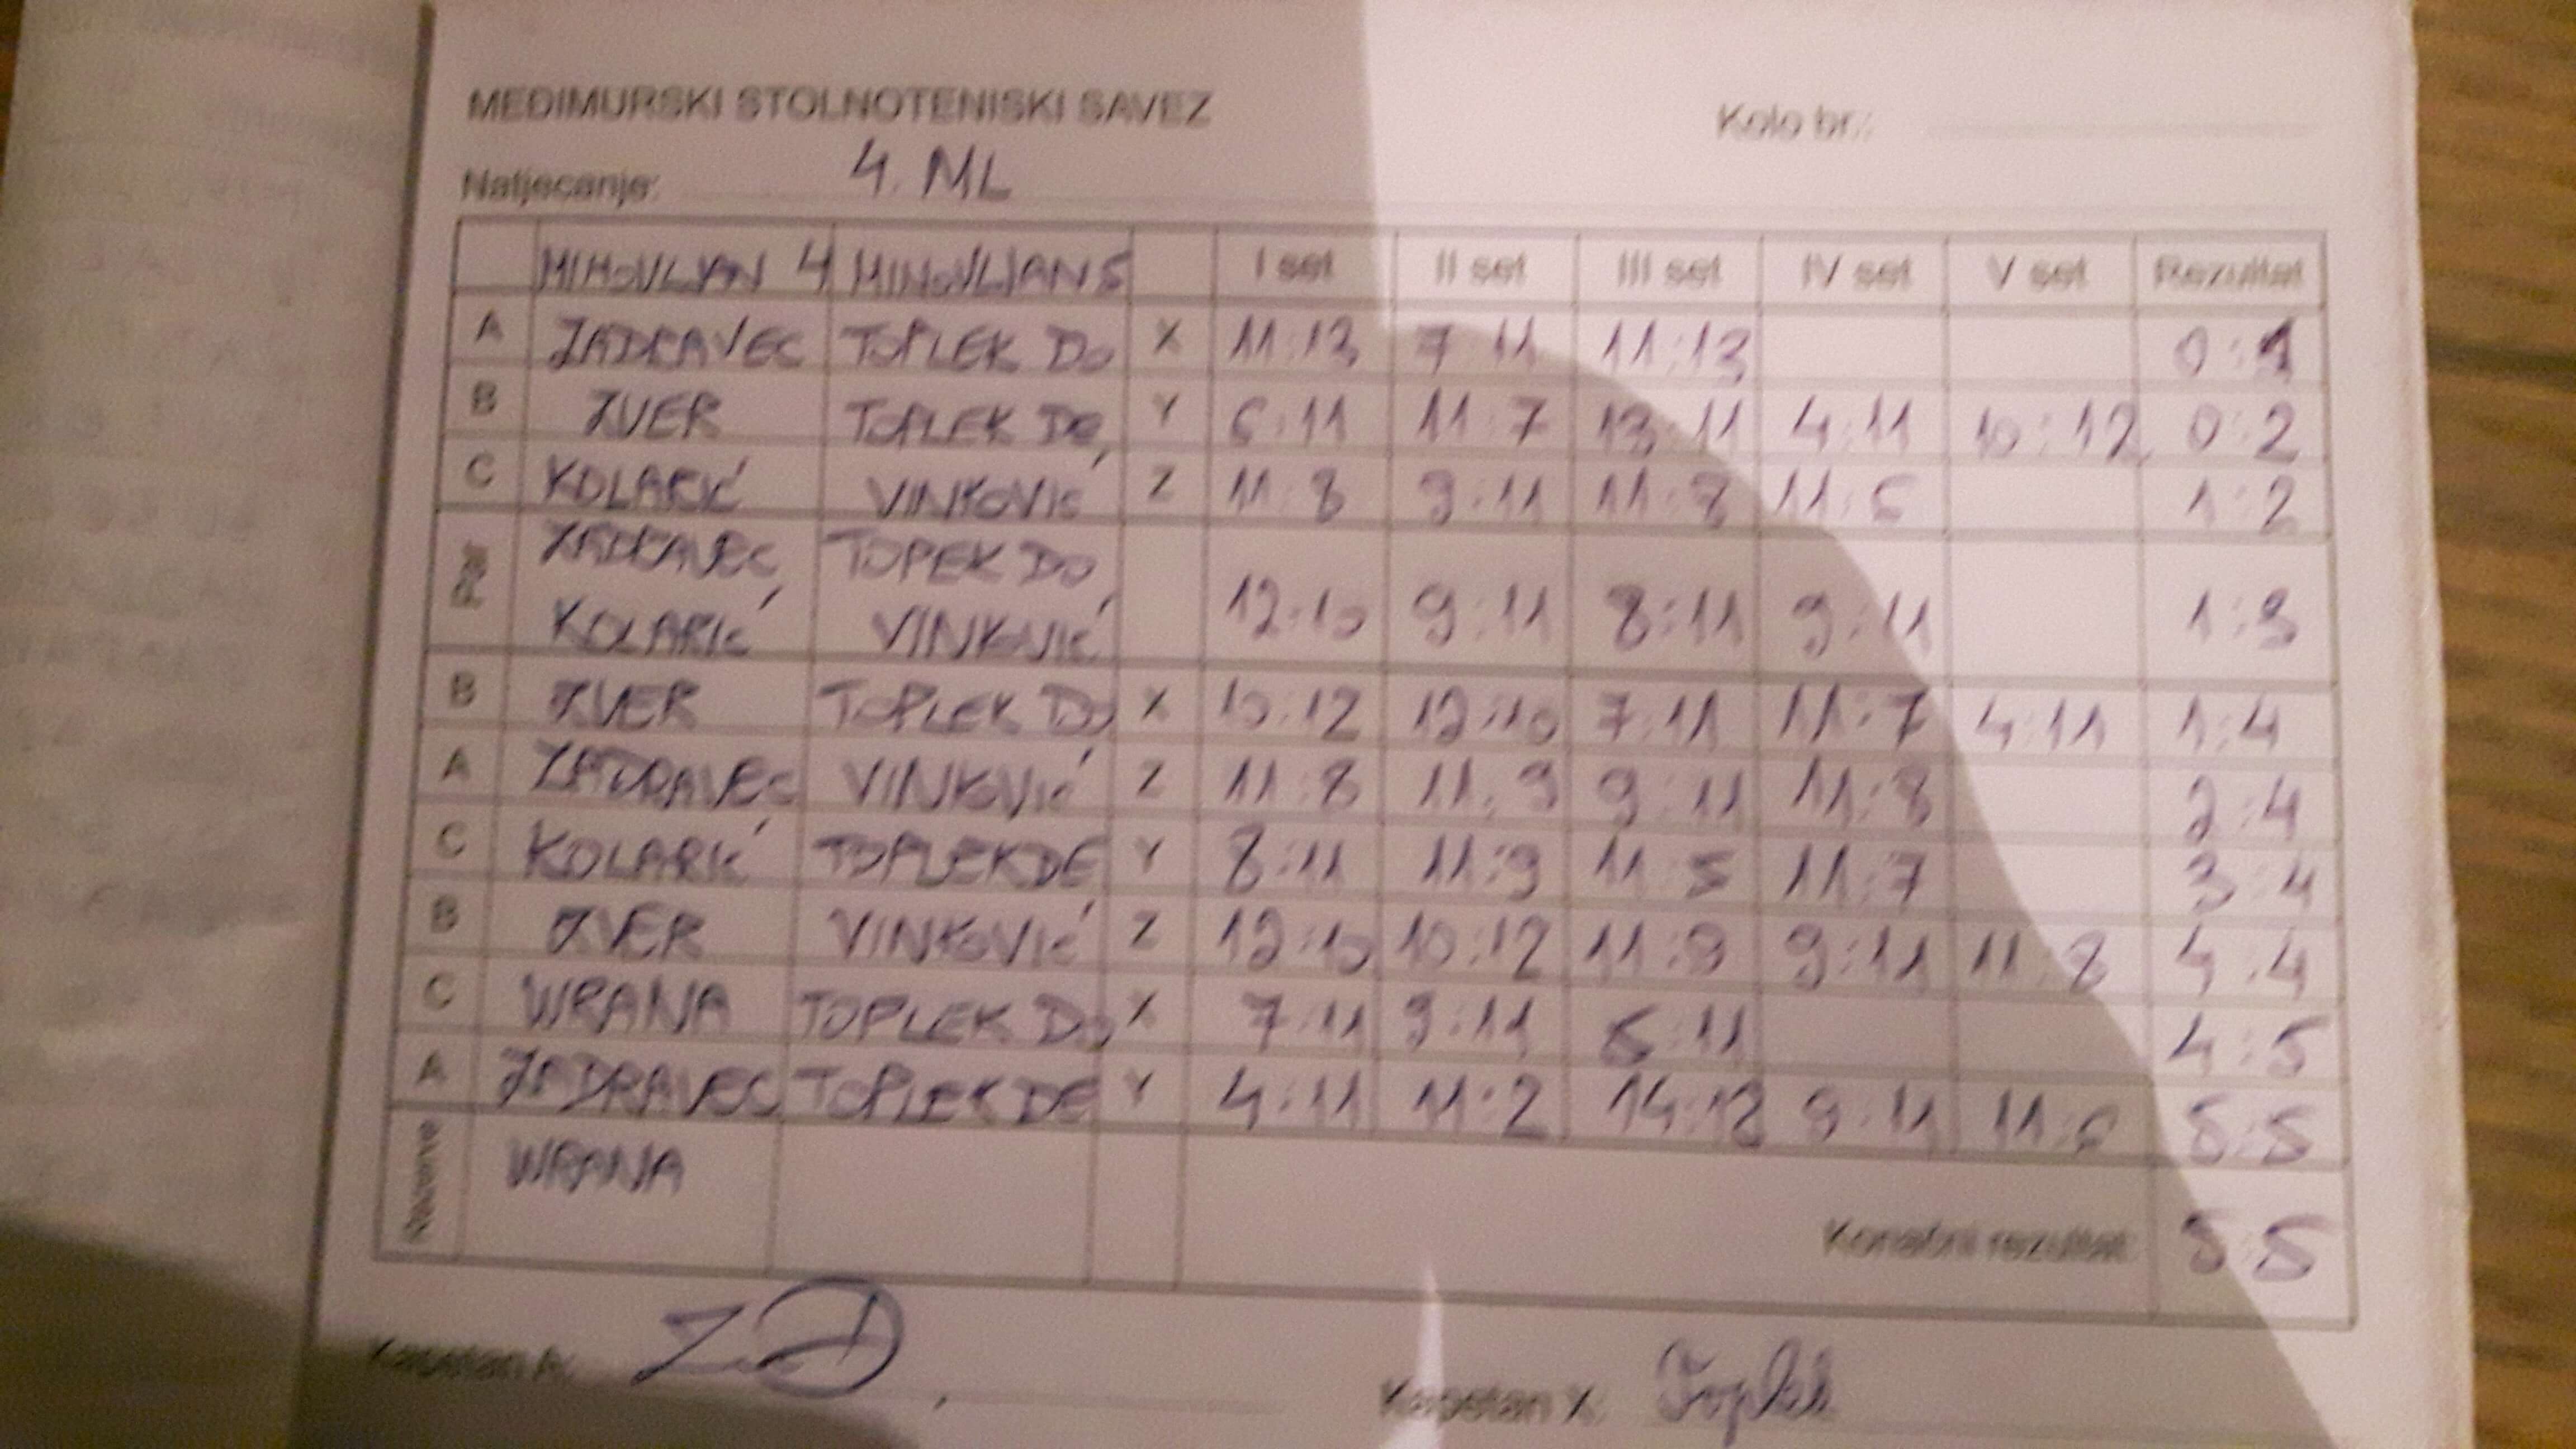 MEĐIMURSKI STOLNOTENISKI SAVEZ
Kolo br.:
Natjecanje: 4. ML
MIHOVLJAN 4 MIHOVLJAN 5 I set II set III set IV set V set Rezultat
A ZADRAVEC TOPLEK DO X 11:13 7:11 11:13 0:1
B ZVER TOPLEK DE Y 6:11 11:7 13:11 4:11 10:12 0:2
C KOLARIĆ VINKOVIĆ Z 11:8 9:11 11:8 11:6 1:2
ZADRAVEC TOPEK DO
KOLARIĆ VINKOVIĆ 12:10 9:11 8:11 9:11 1:3
B ZVER TOPLEK DO X 10:12 12:10 7:11 11:7 4:11 1:4
A ZADRAVEC VINKOVIĆ Z 11:8 11:9 9:11 11:8 2:4
C KOLARIĆ TOPLEK DE Y 8:11 11:9 11:5 11:7 3:4
B ZVER VINKOVIĆ Z 12:10 10:12 11:9 9:11 11:8 4:4
C WRANA TOPLEK DO X 7:11 9:11 :11 4:5
A ZADRAVEC TOPLEK DE Y 4:11 11:2 14:12 9:11 11: 5:5
Rezerve WRANA
Konačni rezultat: 5:5
Kapetan A: Kapetan X: Toplek